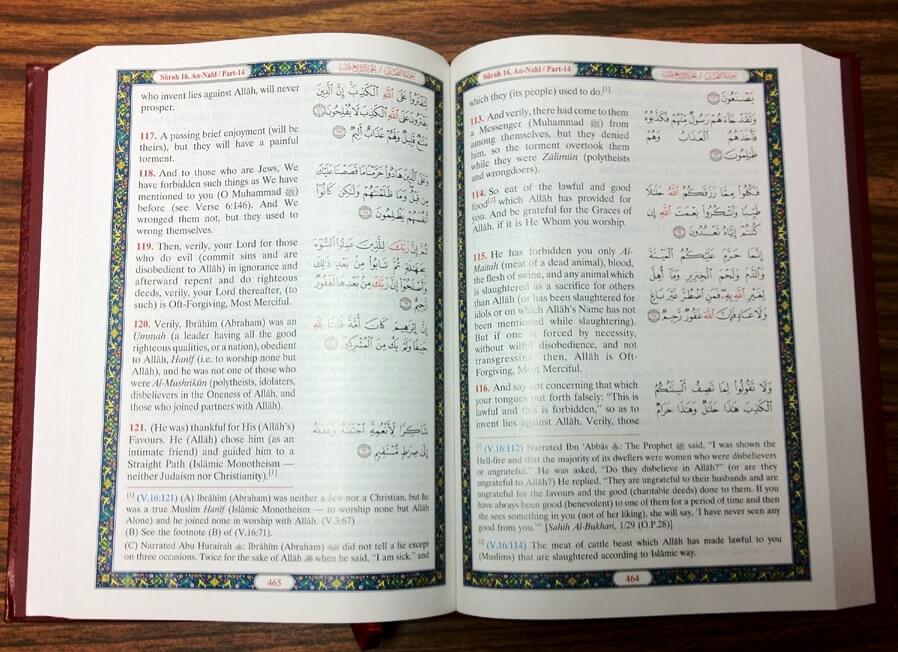 Sûrah 16. An-Nahl / Part-14
which they (its people) used to do.[1]
113. And verily, there had come to them
a Messenger (Muhammad ﷺ) from
among themselves, but they denied
him, so the torment overtook them
while they were Zâlimûn (polytheists
and wrongdoers).
114. So eat of the lawful and good
food[2] which Allâh has provided for
you. And be grateful for the Graces of
Allâh, if it is He Whom you worship.
115. He has forbidden you only Al-
Maitah (meat of a dead animal), blood,
the flesh of swine, and any animal which
is slaughtered as a sacrifice for others
than Allâh (or has been slaughtered for
idols or on which Allâh's Name has not
been mentioned while slaughtering).
But if one is forced by necessity,
without wilful disobedience, and not
transgressing then, Allâh is Oft-
Forgiving, Most Merciful.
116. And say not concerning that which
your tongues put forth falsely: "This is
lawful and this is forbidden," so as to
invent lies against Allâh. Verily, those
يَصْنَعُونَ
وَلَقَدْ جَآءَهُمْ رَسُولٌ مِّنْهُمْ فَكَذَّبُوهُ
فَأَخَذَهُمُ ٱلْعَذَابُ وَهُمْ
ظَٰلِمُونَ
فَكُلُوا۟ مِمَّا رَزَقَكُمُ ٱللَّهُ حَلَٰلًا
طَيِّبًا وَٱشْكُرُوا۟ نِعْمَتَ ٱللَّهِ إِن
كُنتُمْ إِيَّاهُ تَعْبُدُونَ
إِنَّمَا حَرَّمَ عَلَيْكُمُ ٱلْمَيْتَةَ
وَٱلدَّمَ وَلَحْمَ ٱلْخِنزِيرِ وَمَآ أُهِلَّ
لِغَيْرِ ٱللَّهِ بِهِۦ فَمَنِ ٱضْطُرَّ غَيْرَ بَاغٍ
وَلَا عَادٍ فَإِنَّ ٱللَّهَ غَفُورٌ رَّحِيمٌ
وَلَا تَقُولُوا۟ لِمَا تَصِفُ أَلْسِنَتُكُمُ
ٱلْكَذِبَ هَٰذَا حَلَٰلٌ وَهَٰذَا حَرَامٌ
[1] (V.16:112) Narrated Ibn 'Abbâs: The Prophet ﷺ said, "I was shown the
Hell-fire and that the majority of its dwellers were women who were disbelievers
or ungrateful." He was asked, "Do they disbelieve in Allâh?" (or are they
ungrateful to Allâh?) He replied, "They are ungrateful to their husbands and are
ungrateful for the favours and the good (charitable deeds) done to them. If you
have always been good (benevolent) to one of them for a period of time and then
she sees something in you (not of her liking), she will say, 'I have never seen any
good from you.'" [Sahih Al-Bukhari, 1/29 (O.P.28)]
[2] (V.16:114) The meat of cattle beast which Allâh has made lawful to you
(Muslims) that are slaughtered according to Islâmic way.
464
Sûrah 16. An-Nahl / Part-14
who invent lies against Allâh, will never
prosper.
117. A passing brief enjoyment (will be
theirs), but they will have a painful
torment.
118. And to those who are Jews, We
have forbidden such things as We have
mentioned to you (O Muhammad ﷺ)
before (see Verse 6:146). And We
wronged them not, but they used to
wrong themselves.
119. Then, verily, your Lord for those
who do evil (commit sins and are
disobedient to Allâh) in ignorance and
afterward repent and do righteous
deeds, verily, your Lord thereafter, (to
such) is Oft-Forgiving, Most Merciful.
120. Verily, Ibrâhîm (Abraham) was an
Ummah (a leader having all the good
righteous qualities, or a nation), obedient
to Allâh, Hanîf (i.e. to worship none but
Allâh), and he was not one of those who
were Al-Mushrikûn (polytheists, idolaters,
disbelievers in the Oneness of Allâh, and
those who joined partners with Allâh).
121. (He was) thankful for His (Allâh's)
Favours. He (Allâh) chose him (as an
intimate friend) and guided him to a
Straight Path (Islâmic Monotheism —
neither Judaism nor Christianity).[1]
لِّتَفْتَرُوا۟ عَلَى ٱللَّهِ ٱلْكَذِبَ إِنَّ ٱلَّذِينَ
يَفْتَرُونَ عَلَى ٱللَّهِ ٱلْكَذِبَ لَا يُفْلِحُونَ
مَتَٰعٌ قَلِيلٌ وَلَهُمْ عَذَابٌ أَلِيمٌ
وَعَلَى ٱلَّذِينَ هَادُوا۟ حَرَّمْنَا مَا قَصَصْنَا عَلَيْكَ
مِن قَبْلُ وَمَا ظَلَمْنَٰهُمْ وَلَٰكِن كَانُوٓا۟
أَنفُسَهُمْ يَظْلِمُونَ
ثُمَّ إِنَّ رَبَّكَ لِلَّذِينَ عَمِلُوا۟ ٱلسُّوٓءَ
بِجَهَٰلَةٍ ثُمَّ تَابُوا۟ مِنۢ بَعْدِ ذَٰلِكَ
وَأَصْلَحُوٓا۟ إِنَّ رَبَّكَ مِنۢ بَعْدِهَا لَغَفُورٌ
رَّحِيمٌ
إِنَّ إِبْرَٰهِيمَ كَانَ أُمَّةً قَانِتًا لِّلَّهِ
حَنِيفًا وَلَمْ يَكُ مِنَ ٱلْمُشْرِكِينَ
شَاكِرًا لِّأَنْعُمِهِ ٱجْتَبَىٰهُ وَهَدَىٰهُ
إِلَىٰ صِرَٰطٍ مُّسْتَقِيمٍ
[1] (V.16:121) (A) Ibrâhîm (Abraham) was neither a Jew nor a Christian, but he
was a true Muslim Hanîf (Islâmic Monotheism — to worship none but Allâh
Alone) and he joined none in worship with Allâh. (V.3:67)
(B) See the footnote (B) of (V.16:71).
(C) Narrated Abu Hurairah: Ibrâhîm (Abraham) did not tell a lie except
on three occasions. Twice for the sake of Allâh when he said, "I am sick," and
465